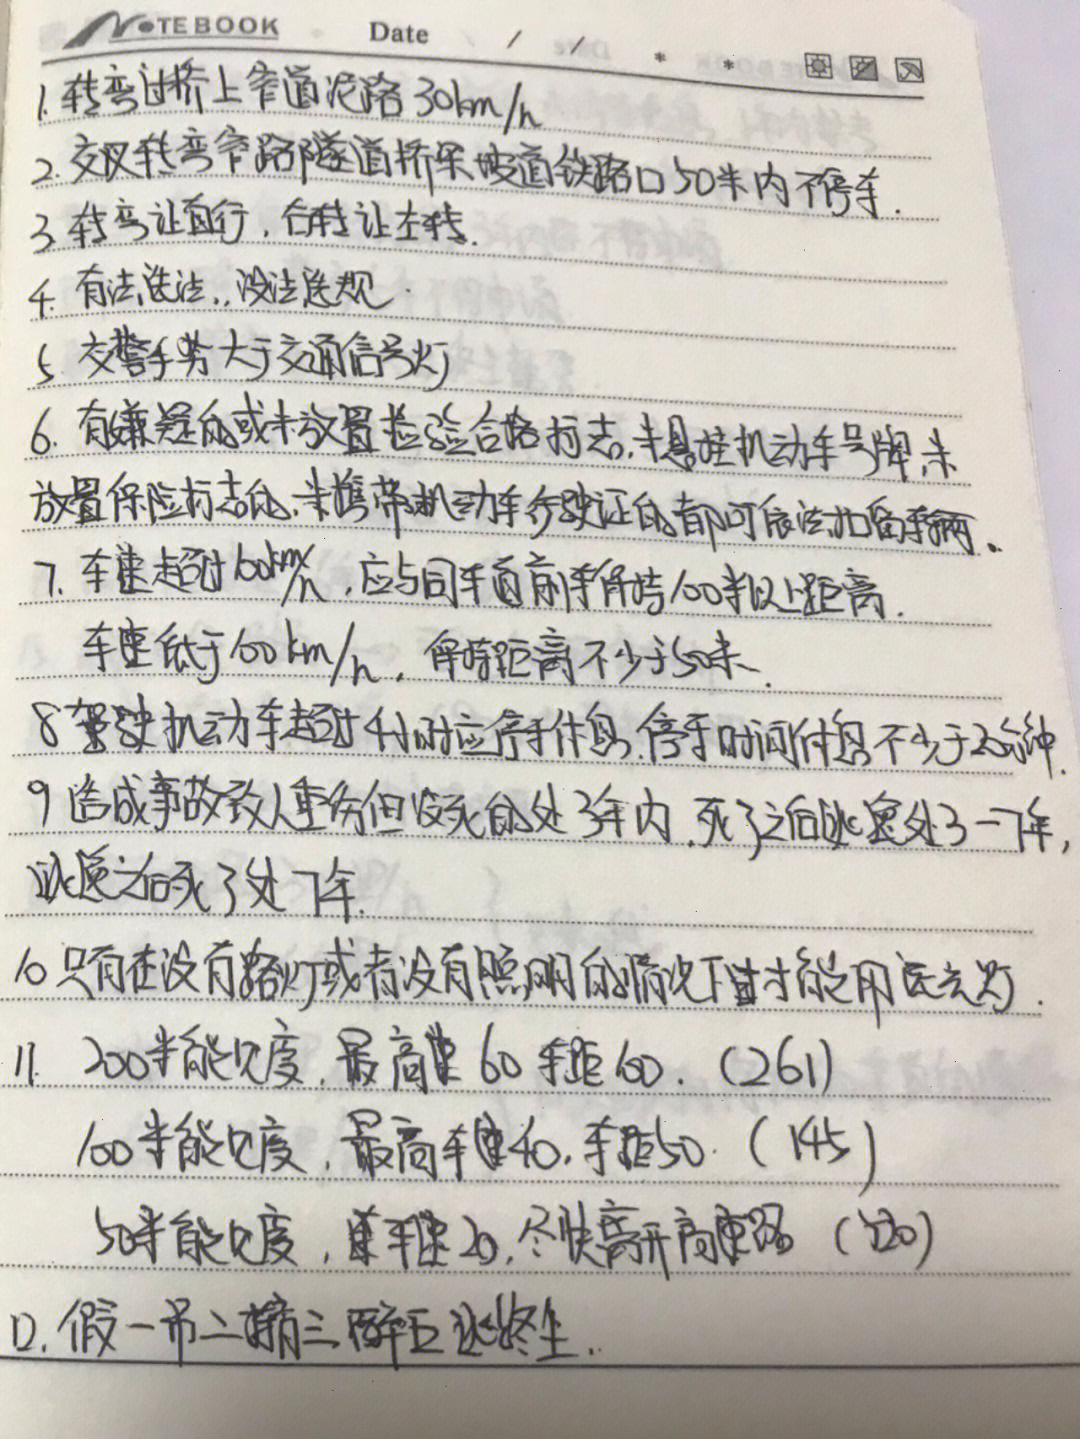 NOTEBOOK Date / / * *
1. 转弯过桥上窄道泥路30km/h
2. 交叉转弯窄路隧道桥梁坡道铁路口50米内不停车.
3. 转弯让直行,右转让左转.
4. 有法选法,,没法选规.
5. 交警手势大于交通信号灯
6. 有嫌疑的或未放置检验合格标志.未悬挂机动车号牌.未
放置保险标志的.未携带机动车行驶证的都可依法扣留车辆。
7. 车速超过100km/h,应与同车道前车保持100米以上距离.
车速低于100km/h,保持距离不少于50米.
8 驾驶机动车超过4小时应停车休息.停车时间休息不少于20分钟.
9 造成事故致人重伤但没死的处3年内.死了之后逃逸处3-7年,
逃逸之后死了处7年.
10 只有在没有路灯或者没有照明的情况下直才能用远光灯.
11. 200米能见度,最高速60车距100.(261)
100米能见度,最高车速40,车距50.(145)
50米能见度,车速20,尽快离开高速路(520)
12. 假一吊二撤三醉五逃终生.